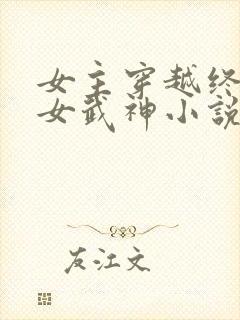 女主穿越终
女武神小説
友江文